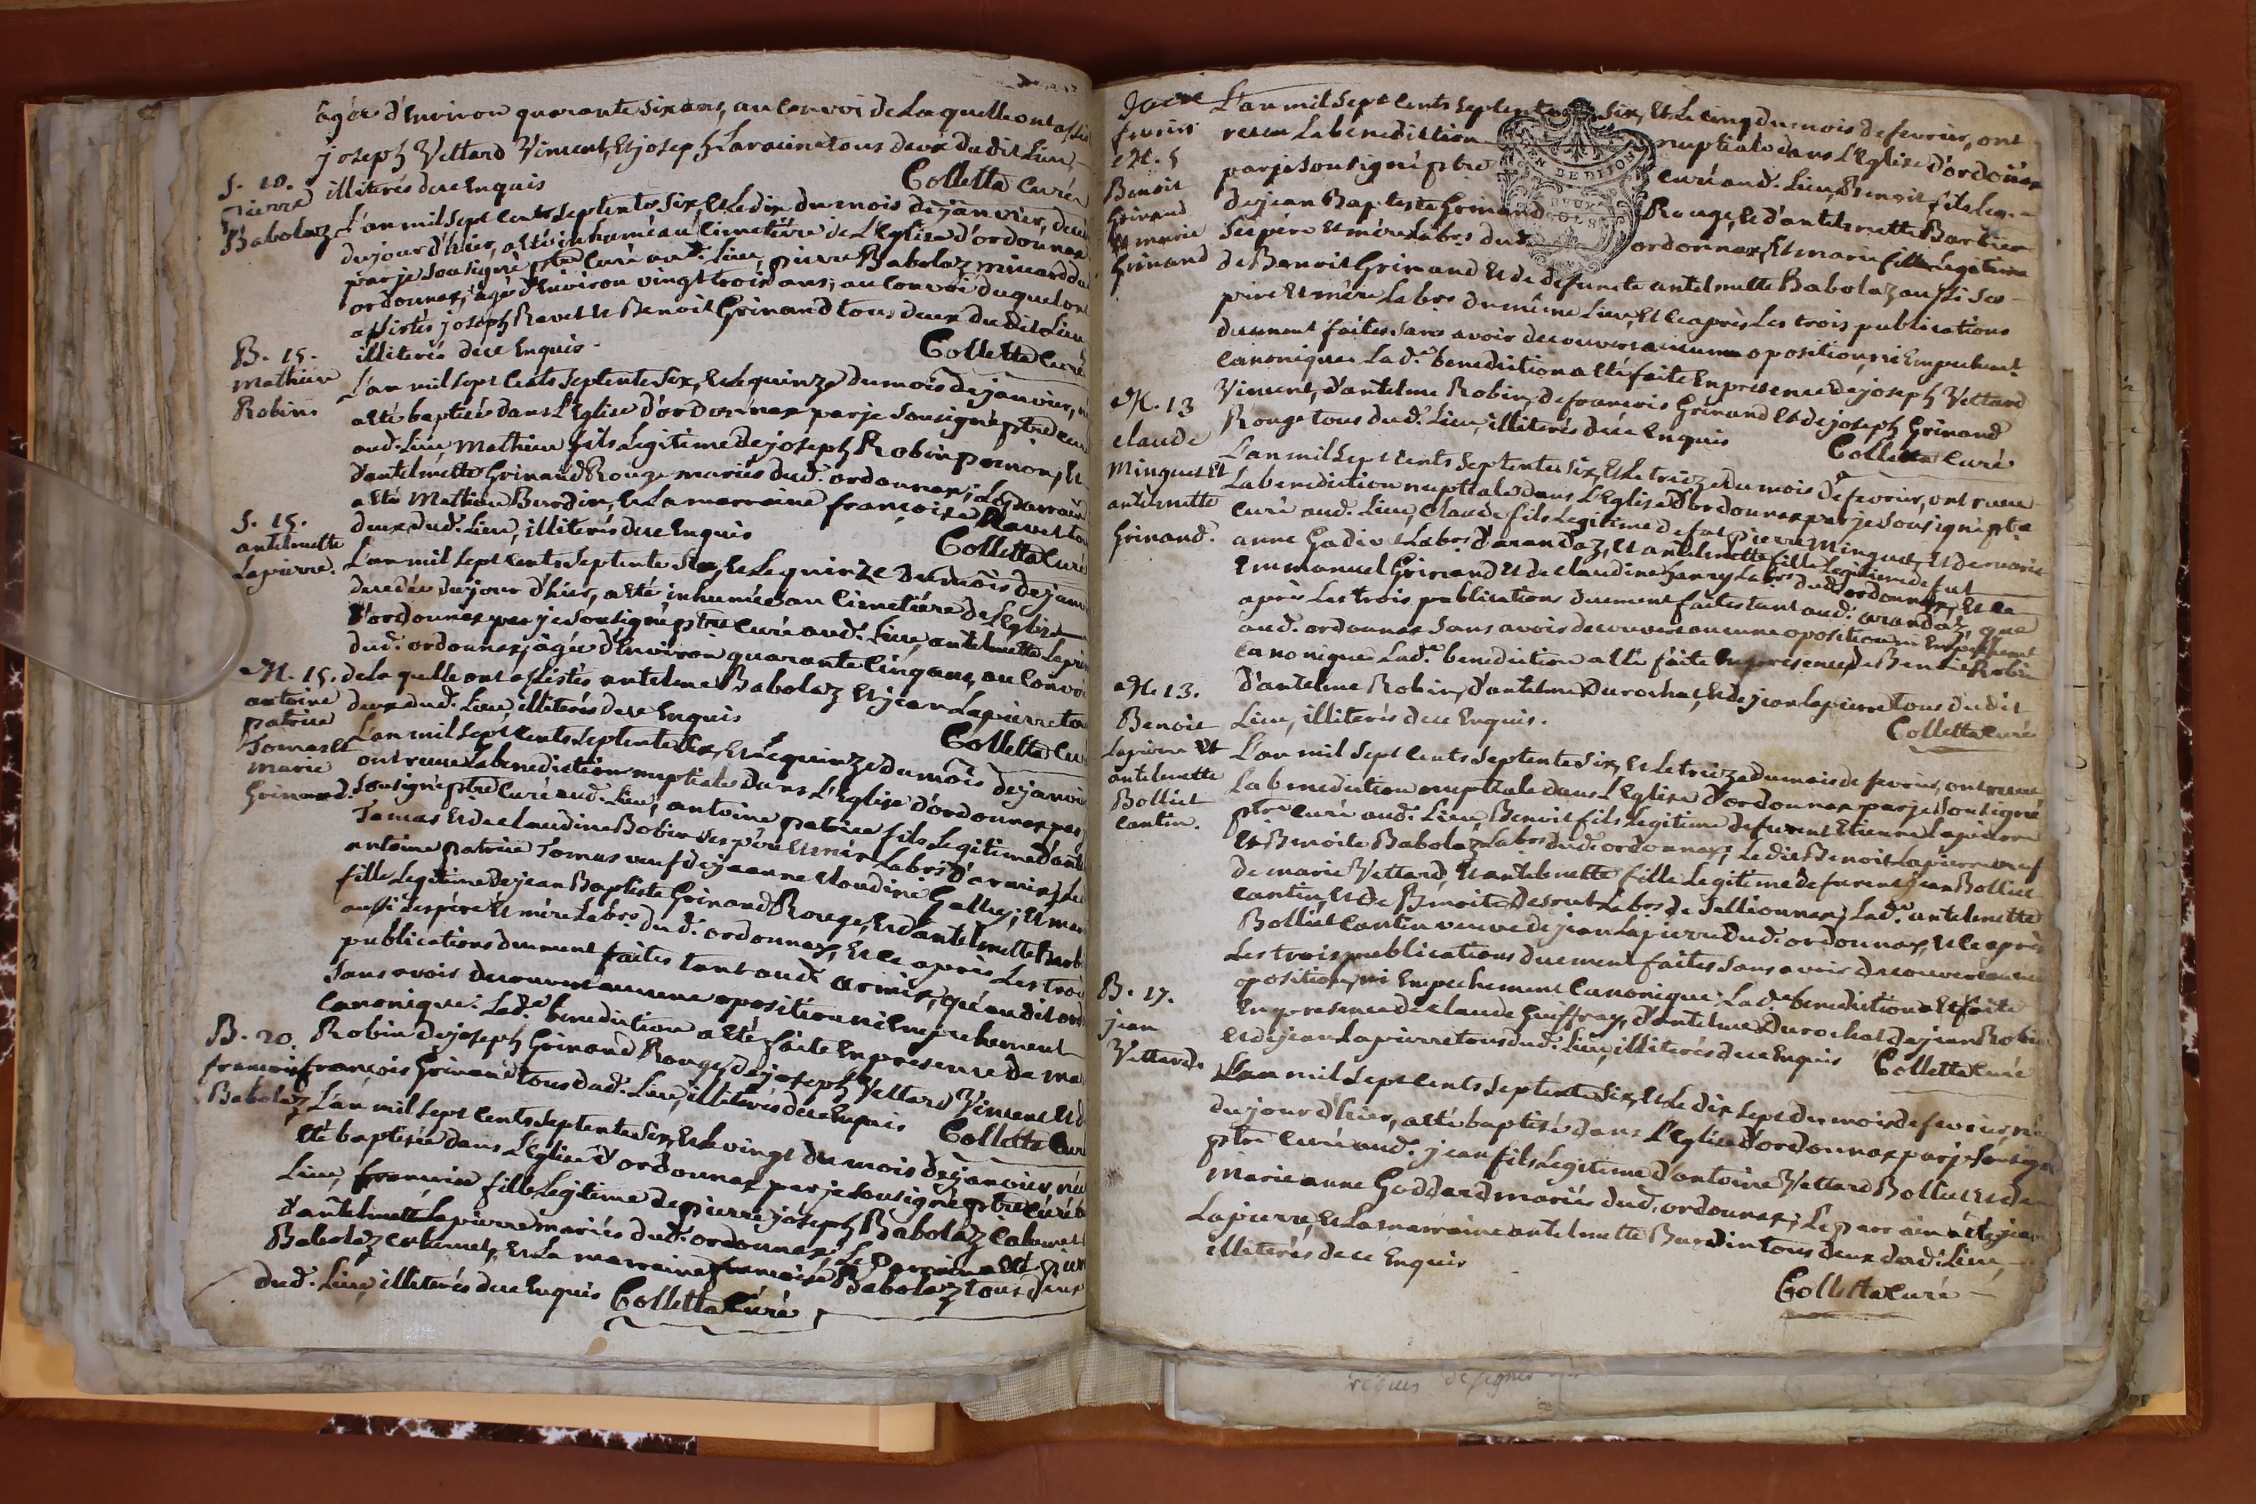 âgée d'Environ quarante six ans, au Convoi de Laquelle ont assis
joseph Vettard Vincent, Et joseph Laracine tous deux du dit Lieu,
illiterés de ce Enquis
Colletta Curé
S. 10.
Pierre
Babolaz
L'an mil sept cents septente six, Et Le dix du mois de janvier, decedé
du jour d'hier, a été inhumé au Cimetière de L'Eglise d'ordonnax
par je sousigné ptre Curé aud. Lieu, pierre Babolaz minard du
ordonnax, âgé d'Environ vingt trois ans, au Convoi duquel ont
assistés joseph Ravet Et Benoit Grinand tous deux du dit Lieu
illiterés de ce Enquis.
Colletta Curé
B. 15.
Mathieu
Robin
L'an mil sept Cents Septente Six, Et Le quinze du mois de janvier, né
a été baptisé dans L'Eglise d'ordonnax par je sousigné ptre Curé
aud. Lieu, Mathieu fils Legitime de joseph Robin pernon, Et
d'antelmette Grinand Rouge mariés dud. ordonnax; Le parrain
a été Mathieu Burdin, Et La marraine françoise Ravet tous
deux dud. Lieu, illiterés de ce Enquis
Colletta Curé
S. 15.
antelmette
Lapierre.
L'an mil sept cents septente Six, Et Le quinze du mois de janv
decedée du jour d'hier, a été inhumée au Cimetière de L'Eglise
d'ordonnax par je sousigné ptre Curé aud. Lieu, antelmette Lapier
dud. ordonnax, âgée d'Environ quarante Cinq ans, au Convoi
de La quelle ont assistés antelme Babolaz Et jean Lapierre tous
deux dud. Lieu, illiterés de ce Enquis
Colletta Curé
M. 15.
antoine
patrice
Tomas Et
marie
Grinand.
L'an mil sept cents septente Six, Et Le quinze du mois de janvi
ont recue La benediction nuptiale dans L'Eglise d'ordonnax par j
sousigné ptre Curé aud. Lieu, antoine patrice fils Legitime d'ant
Tomas Et de claudine Bobin ses père Et mère Labrs d'armix, Le
antoine patrice Tomas veuf de jeanne Claudine Gallez; Et mar
fille Legitime de jean Baptiste Grinand Rouge, Et d'antelmette Barb
aussi ses père Et mère Labrs dud. ordonnax, Et ce après Les troi
publications duement faites tant aud. armix, qu'au dit ord
sans avoir decouvert aucune oposition ni Empechement
canonique: Lad. benediction a été faite En presence de ma
Robin de joseph Grinand Rouge, de joseph Vettard Vincent Et d
françois Grinand tous dud. Lieu, illiterés de ce Enquis
Colletta Curé
B. 20.
françoise
Babolaz
L'an mil sept Cents septente Six, Et Le vingt du mois de janvier, née
été baptisée dans L'Eglise d'ordonnax par je sousigné ptre Curé
Lieu, françoise fille Legitime de pierre joseph Babolaz
d'antelmette Lapierre mariés dud. ordonnax; Le Parrain a été pier
Babolaz, Et La marraine françoise Babolaz tous deux
dud. Lieu, illiterés de ce Enquis
Colletta Curé
fevrier
M. 5
Benoit
Grinand
Et marie
Grinand
L'an mil sept Cents septente six, Et Le Cinq du mois de fevrier, ont
receu La benediction nuptiale dans L'Eglise d'ordonnax
par je sousigné ptre Curé aud. Lieu, Benoit fils Leg.
de jean Baptiste Grinand Rouge, Et d'antelmette Barbier
Ses père Et mère Labrs dud. ordonnax, Et marie fille Legitime
de Benoit Grinand Et de defuncte antelmette Babolaz aussi ses
père Et mère Labrs du même Lieu, Et ce après Les trois publications
duement faites sans avoir decouvert aucune oposition, ni Empechemt
canonique: Lad. benediction a été faite En presence de joseph Vettard
Vincent, d'antelme Robin, de francois Grinand Et de joseph Grinand
Rouge tous dud. Lieu, illiterés de ce Enquis
Colletta Curé
M. 13
claude
Minguet Et
antelmette
Grinand.
L'an mil sept cents septente six, Et Le treize du mois de fevrier, ont receu
La benediction nuptiale dans L'Eglise d'ordonnax par je sousigné ptre
Curé aud. Lieu, Claude fils Legitime de fut pierre Minguet, Et de marie
anne Gadivet Labrs d'arandaz, Et antelmette fille Legitime de fut
Emmanuel Grinand Et de Claudine Labrs dud. ordonnax, Et ce
après Les trois publications duement faites tant aud. arandaz, que
aud. ordonnax sans avoir decouvert aucune oposition ni Empechement
canonique: Lad. benediction a été faite En presence de Benoit Robin
d'antelme Robin, d'antelme Durochat, Et de jean Lapierre tous du dit
Lieu, illiterés de ce Enquis.
Colletta Curé
M. 13.
Benoit
Lapierre Et
antelmette
Bolliet
Cantin.
L'an mil sept Cents Septente Six, Et Le treize du mois de fevrier, ont receu
La benediction nuptiale dans L'Eglise d'ordonnax par je Sousigné
ptre Curé aud. Lieu, Benoit fils Legitime de furent Etienne Lapierre
Et Benoite Babolaz Labrs dud. ordonnax; Le dit Benoit Lapierre veuf
de marie Vettard, Et antelmette fille Legitime de furent jean Bolliet
Cantin, Et de Benoite Labrs de Sellionnax; Lad. antelmette
Bolliet Cantin veuve de jean Lapierre dud. ordonnax, Et ce après
Les trois publications duement faites sans avoir decouvert aucune
oposition, ni Empechement Canonique: Lad. benediction a été faite
En presence de Claude Guiffray, d'antelme Durochat de jean Robin
Et de jean Lapierre tous dud. Lieu, illiterés de ce Enquis
Colletta Curé
B. 17.
jean
Vettard.
L'an mil sept Cents septente Six, Et Le dix sept du mois de fevrier, né
du jour d'hier, a été baptisé dans L'Eglise d'ordonnax par je Sousigné
ptre Curé aud. jean fils Legitime d'antoine Vettard Bolliet Et de
Marie anne Goddard mariés dud. ordonnax; Le parrain a été jean
Lapierre, Et La marraine antelmette Burdin tous deux dud. Lieu,
illiterés de ce Enquis
Colletta Curé
GEN. DE DIJON
DEUX SOLS